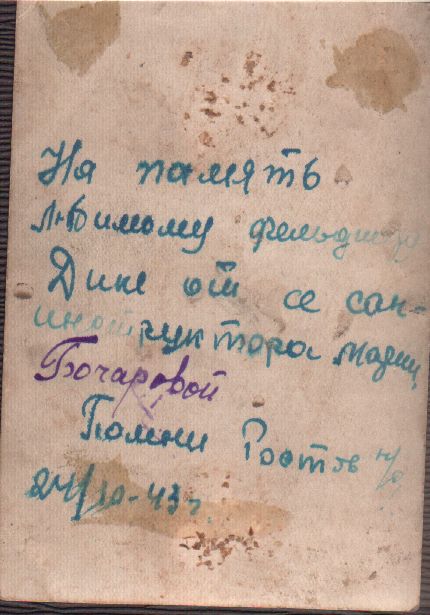 На память
Любимому фельдшеру
Дине от ее сан-
инструктора Марии
Бочаровой
Помни Ростов н/Д
24/10-43 г.